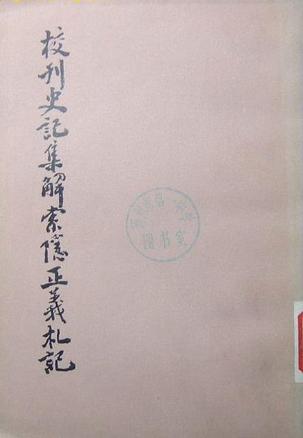 校刊史記集解索隱正義札記
图书室